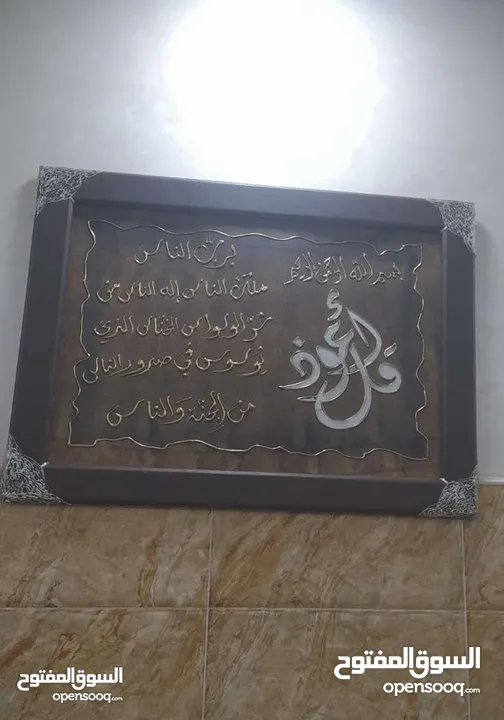 بسم الله الرحمن الرحيم
قل أعوذ
برب الناس
ملك الناس إله الناس من
شر الوسواس الخناس الذي
يوسوس في صدور الناس
من الجنة والناس
السوق المفتوح
opensooq.com
السوق المفتوح
opensooq.com